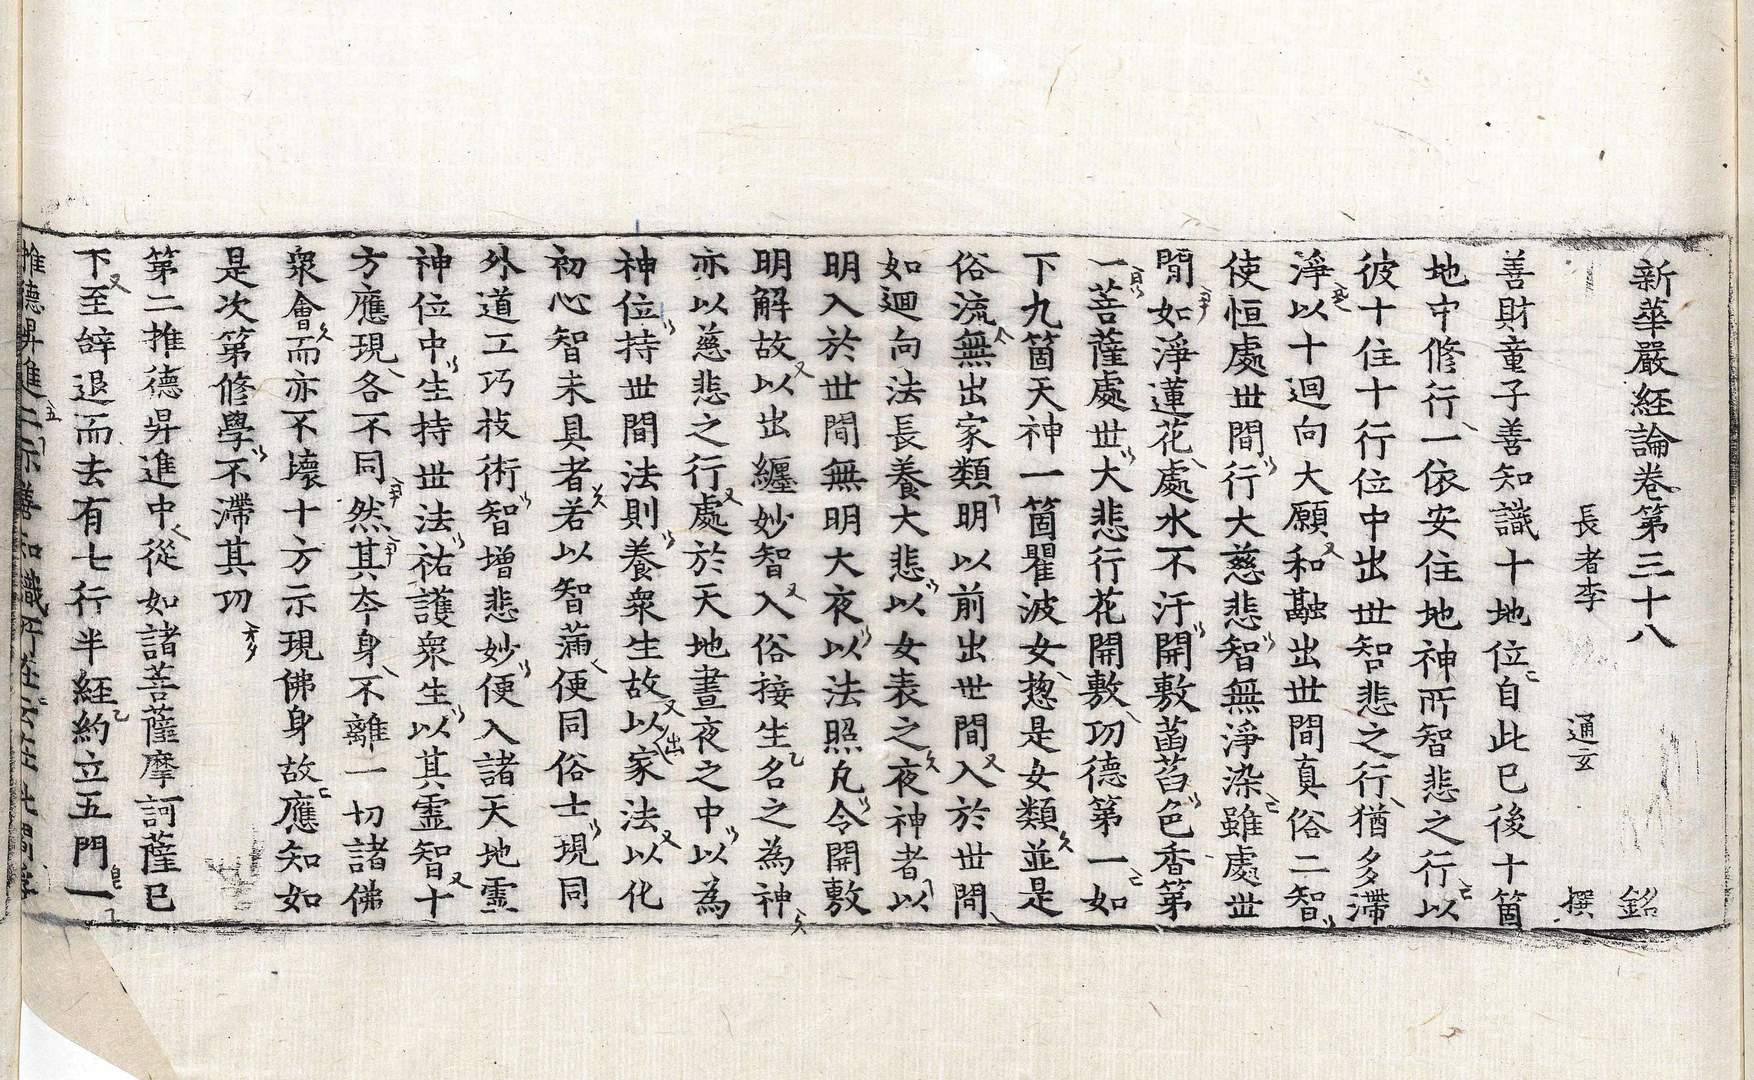 新華嚴経論卷第三十八 銘
長者李 通玄 撰
善財童子善知識十地位自此已後十箇
地中修行一依安住地神所智悲之行以
彼十住十行位中出世智悲之行猶多滯
淨以十迴向大願和融出世間真俗二智
使恒處世間行大慈悲智無淨染雖處世
間如淨蓮花處水不汙開敷菡萏色香第
一菩薩處世大悲行花開敷功德第一如
下九箇天神一箇瞿波女揔是女類並是
俗流無出家類明以前出世間入於世間
如迴向法長養大悲以女表之夜神者以
明入於世間無明大夜以法照凡令開敷
明解故以出纏妙智入俗接生名之為神
亦以慈悲之行處於天地晝夜之中以為
神位持世間法則養衆生故以家法以化
初心智未具者若以智滿便同俗士現同
外道工巧技術智增悲妙便入諸天地靈
神位中生持世法祐護衆生以其靈智十
方應現各不同然其夲身不離一切諸佛
衆會而亦不壞十方示現佛身故應知如
是次第修學不滯其功
第二推德昇進中從如諸菩薩摩訶薩已
下至辞退而去有七行半経約立五門一
推德昇進二示善知識所在